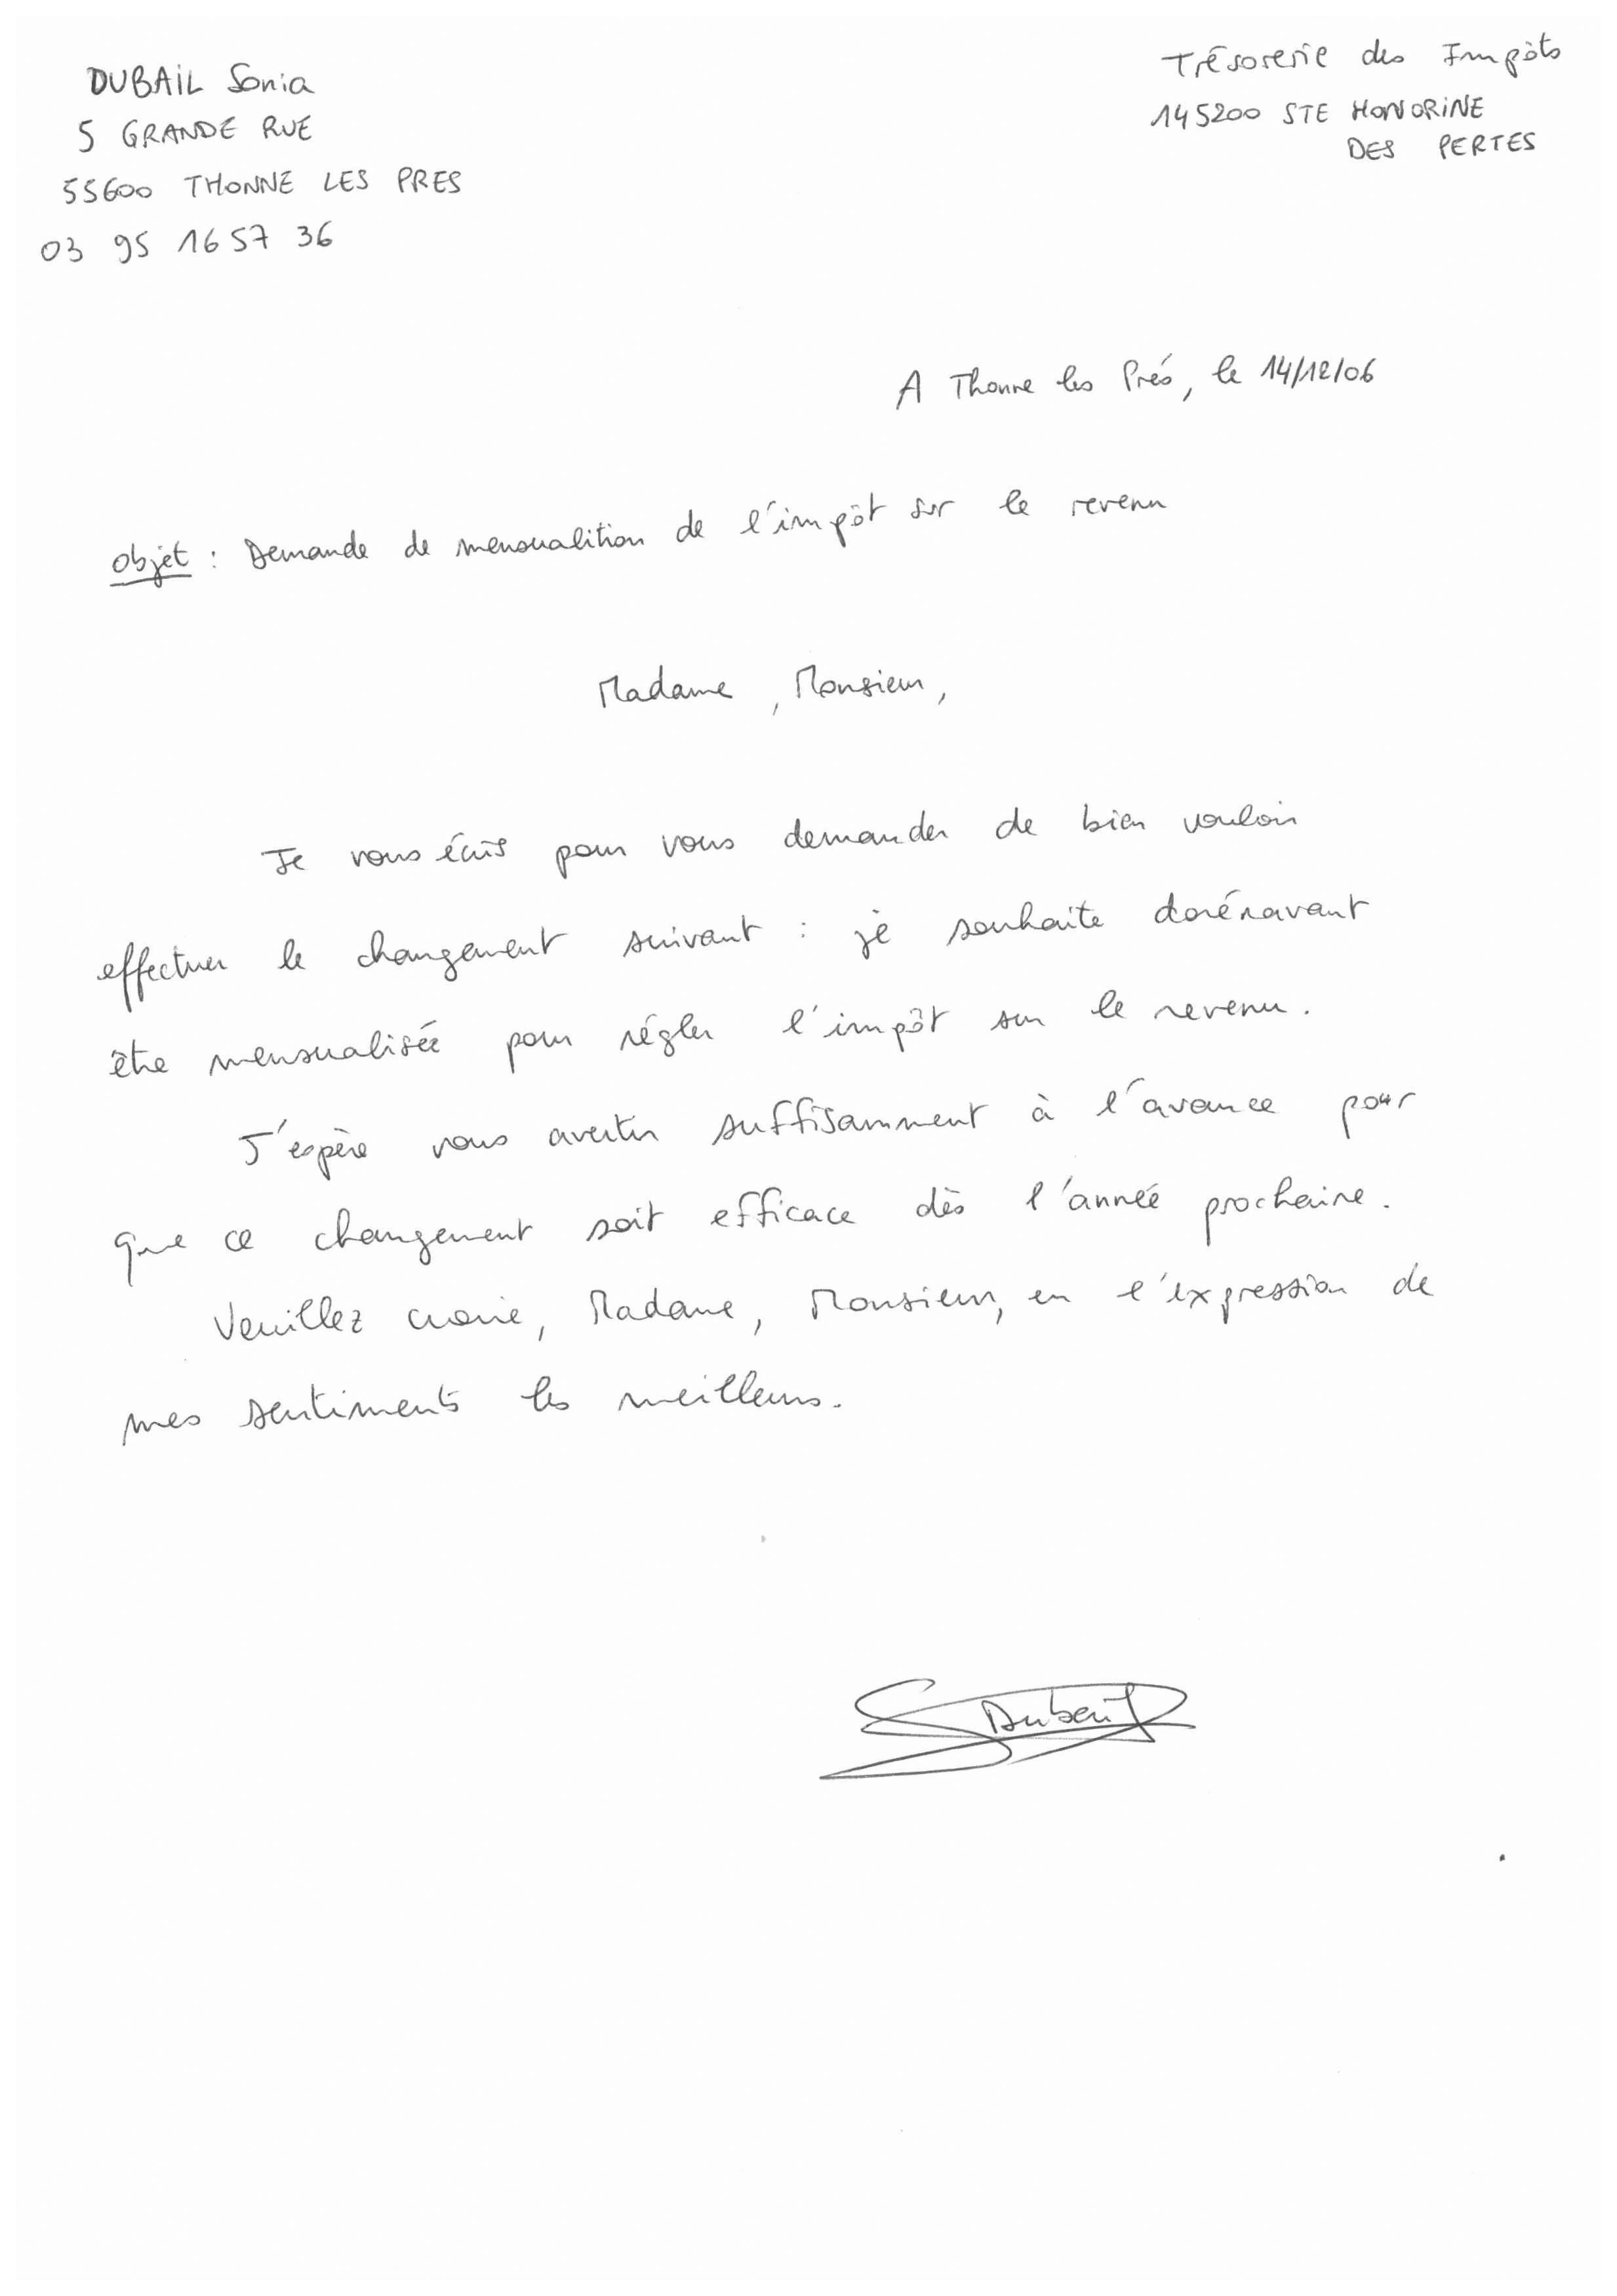 DUBAIL Sonia
5 GRANDE RUE
55600 THONNE LES PRES
03 95 16 57 36
Trésorerie des Impôts
145200 STE HONORINE
DES PERTES
A Thonne les Prés, le 14/12/06
Objet : Demande de mensualition de l'impôt sur le revenu
Madame, Monsieur,
Je vous écris pour vous demander de bien vouloir
effectuer le changement suivant : je souhaite dorénavant
être mensualisée pour régler l'impôt sur le revenu.
J'espère vous avertir suffisamment à l'avance pour
que ce changement soit efficace dès l'année prochaine.
Veuillez croire, Madame, Monsieur, en l'expression de
mes sentiments les meilleurs.
SDubail